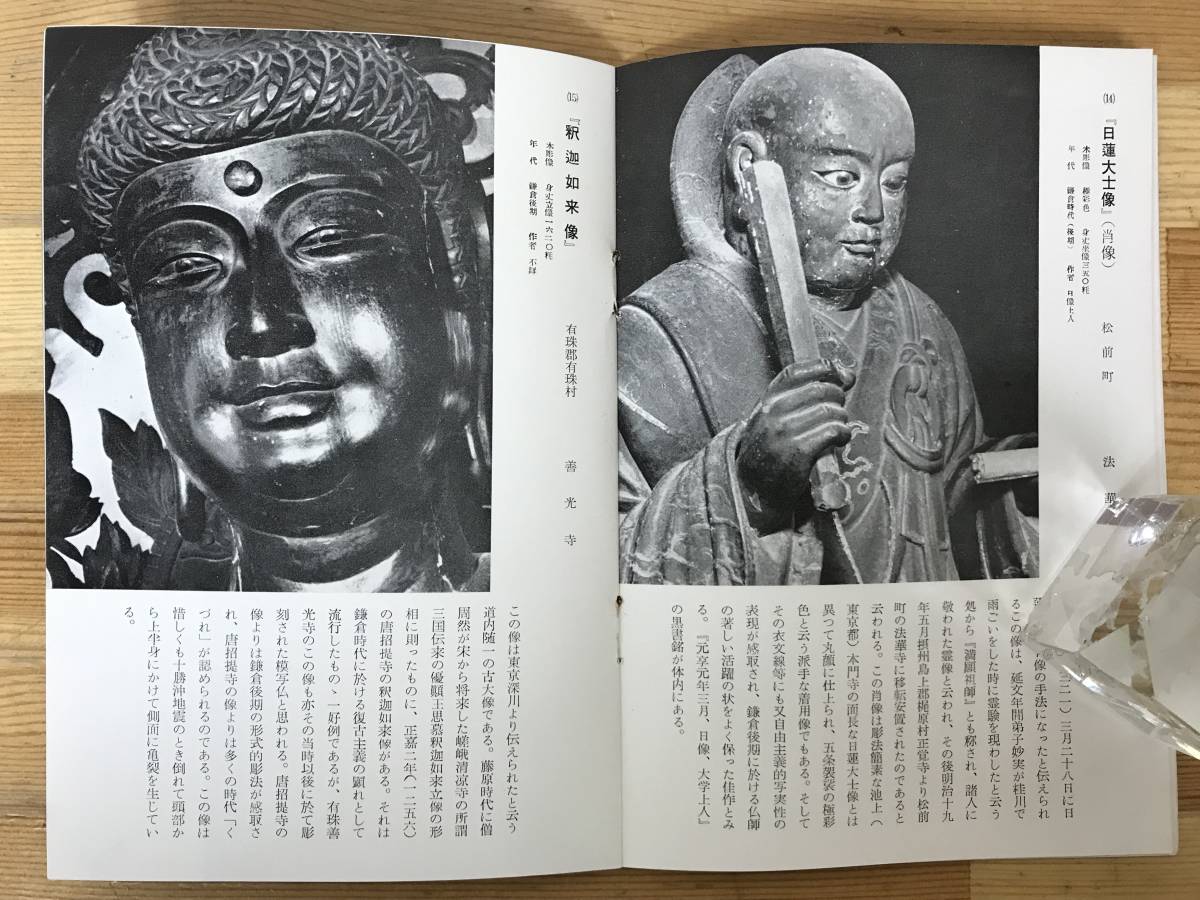 ⒁ 『日蓮大士像』(肖像) 松前町 法華
木彫像 極彩色 身丈坐像三五〇粍
年代 鎌倉時代(後期) 作者 日像上人
二一)三月二十八日に日
像の手法になったと伝えられ
るこの像は、延文年間弟子妙実が桂川で
雨ごいをした時に霊験を現わしたと云う
処から『満願祖師』とも称され、諸人に
敬われた霊像と云われ、その後明治十九
年五月摂州島上郡梶原村正覚寺より松前
町の法華寺に移転安置されたのであると
云われる。この肖像は彫法簡素な池上(
東京都)本門寺の面長な日蓮大士像とは
異つて丸顔に仕上られ、五条袈裟の極彩
色と云う派手な着用像でもある。そして
その衣文線等にも又自由主義的写実性の
表現が感取され、鎌倉後期に於ける仏師
の著しい活躍の状をよく保った佳作とみ
る。『元享元年三月、日像、大学上人』
の黒書銘が体内にある。
⒂ 『釈迦如来像』 有珠郡有珠村 善光寺
木彫像 身丈立像一六二〇粍
年代 鎌倉後期 作者 不詳
この像は東京深川より伝えられたと云う
道内随一の古大像である。藤原時代に僧
周然が宋から将来した嵯峨清涼寺の所謂
三国伝来の優顚王思慕釈迦如来立像の形
相に則ったものに、正嘉二年(一二五六)
の唐招提寺の釈迦如来像がある。それは
鎌倉時代に於ける復古主義の顕れとして
流行したものゝ一好例であるが、有珠善
光寺のこの像も亦その当時以後に於て彫
刻された模写仏と思われる。唐招提寺の
像よりは鎌倉後期の形式的彫法が感取さ
れ、唐招提寺の像よりは多くの時代「く
づれ」が認められるのである。この像は
惜しくも十勝沖地震のとき倒れて頭部か
ら上半身にかけて側面に亀裂を生じてい
る。